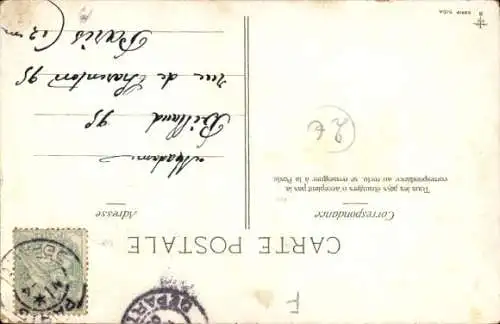 CARTE POSTALE
Correspondance
Tous les pays étrangers n'acceptent pas la
correspondance au recto. se renseigner à la Poste
Adresse
Madame
Billaud 95
rue de Charenton 95
Paris (12 m
2 €
DEPART
T